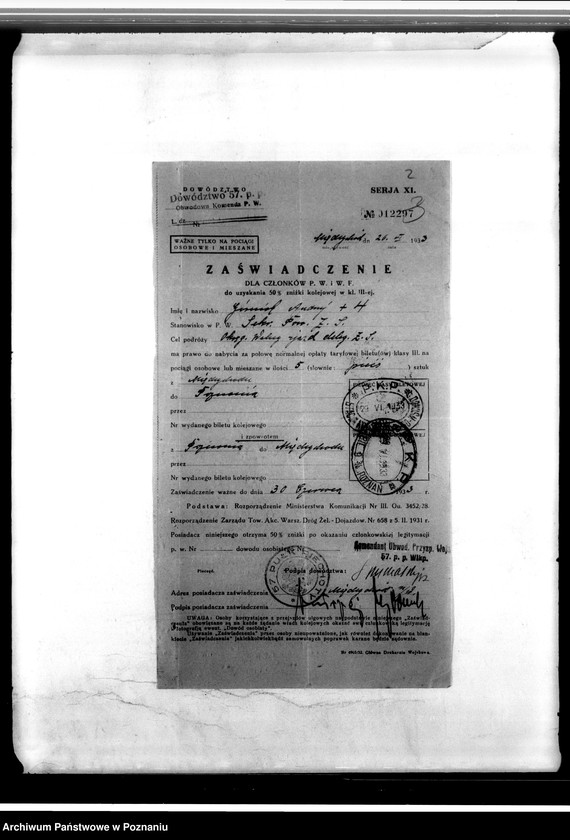 2
DOWÓDZTWO
Dowództwo 57. p. p.
Obwodowa Komenda P. W.
L. dz. №
SERJA XI.
№ 012297
3
WAŻNE TYLKO NA POCIĄGI
OSOBOWE I MIESZANE
Międzychód dn 21. 1933
ZAŚWIADCZENIE
DLA CZŁONKÓW P. W. i W. F.
do uzyskania 50% zniżki kolejowej w kl. III-ej.
Imię i nazwisko + 4
Stanowisko w P. W. Sekr. Pow. Z. S.
Cel podróży Okręg. Walny zjazd deleg. Z. S.
ma prawo do nabycia za połowę normalnej opłaty taryfowej biletu(ów) klasy III. na
pociągi osobowe lub mieszane w ilości 5 (słownie: pięć) sztuk
z Międzychodu
do Poznania
przez
Nr wydanego biletu kolejowego
i zpowrotem
z Poznania do Międzychodu
przez
Nr wydanego biletu kolejowego
Zaświadczenie ważne do dnia 30 Czerwca 1933 r.
P.K.P.
29 VI. 1933
P K P
POZNAŃ
Podstawa: Rozporządzenie Ministerstwa Komunikacji Nr III. Ou. 3452/28.
Rozporządzenie Zarządu Tow. Akc. Warsz. Dróg Żel.-Dojazdow. Nr 658 z 5. II. 1931 r.
Posiadacz niniejszego otrzyma 50% zniżki po okazaniu członkowskiej legitymacji
p. w. Nr dowodu osobistego Nr
Komendant Obwod. Przysp. Woj.
57. p. p. Wlkp.
Pieczęć.
Podpis dowództwa:
Adres posiadacza zaświadczenia Międzychód
Podpis posiadacza zaświadczenia
UWAGA: Osoby korzystające z przejazdów ulgowych na podstawie niniejszego „Zaświad-
czenia" obowiązane są na każde żądanie władz kolejowych okazać swą członkowską legitymację
z fotografją ewent. „Dowód osobisty".
Używanie „Zaświadczenia" przez osoby nieupoważnione, jak również dokonywanie na blan-
kiecie „Zaświadczenia" jakichkolwiekbądź samowolnych poprawek karane będzie sądownie.
Główna Drukarnia Wojskowa.
Archiwum Państwowe w Poznaniu